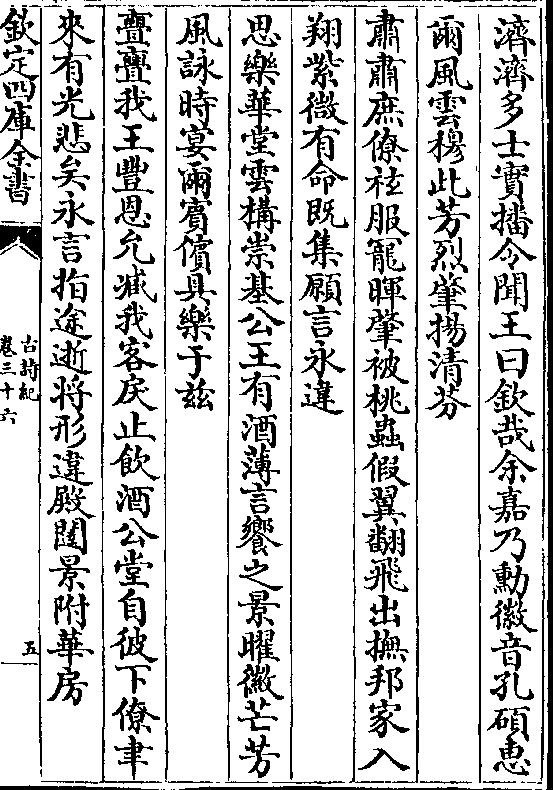 濟濟多士實播令聞王曰欽哉余嘉乃勳徽音孔碩惠
爾風雲穆此芳烈肇揚清芬
肅肅庶僚祛服寵暉肇被桃蟲假翼翻飛出撫邦家入
翔紫微有命既集願言永違
思樂華堂雲構崇基公王有酒薄言饗之景曜徽芒芳
風詠時宴爾賓儐具樂于兹
亹亹我王豐恩允臧我客戾止飲酒公堂自彼下僚聿
來有光悲矣永言指途逝将形違殿闥景附華房
欽定四庫全書
古詩紀
卷三十六
五